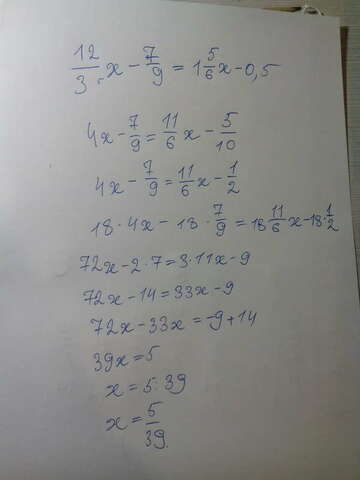 12/3 x - 7/9 = 1 5/6 x - 0,5
4x - 7/9 = 11/6 x - 5/10
4x - 7/9 = 11/6 x - 1/2
18·4x - 18·7/9 = 18 11/6 x - 18·1/2
72x - 2·7 = 3·11x - 9
72x - 14 = 33x - 9
72x - 33x = -9 + 14
39x = 5
x = 5:39
x = 5/39.